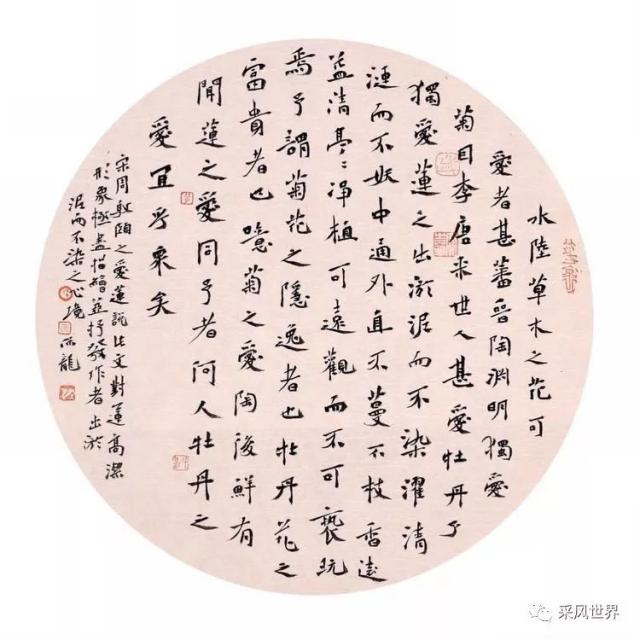 水陸草木之花可
愛者甚蕃晉陶淵明獨愛
菊自李唐来世人甚愛牡丹予
獨愛蓮之出淤泥而不染濯清
漣而不妖中通外直不蔓不枝香遠
益清亭〻淨植可遠觀而不可褻玩
焉予謂菊花之隱逸者也牡丹花之
富貴者也噫菊之愛陶後鮮有
聞蓮之愛同予者何人牡丹之
愛宜乎眾矣
宋周敦頤之愛蓮說此文對蓮高潔
形象極盡描繪並抒發作者出於
泥而不染之心境 龍
采风世界